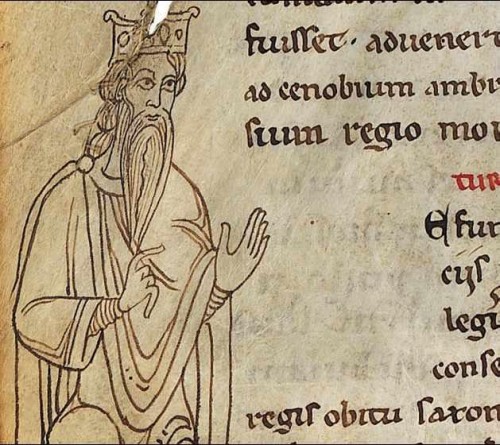 fuisset · advener
ad cenobium ambr
suum regio mor
tur
E fur
cijs
legi
conse
regis obitu saxon